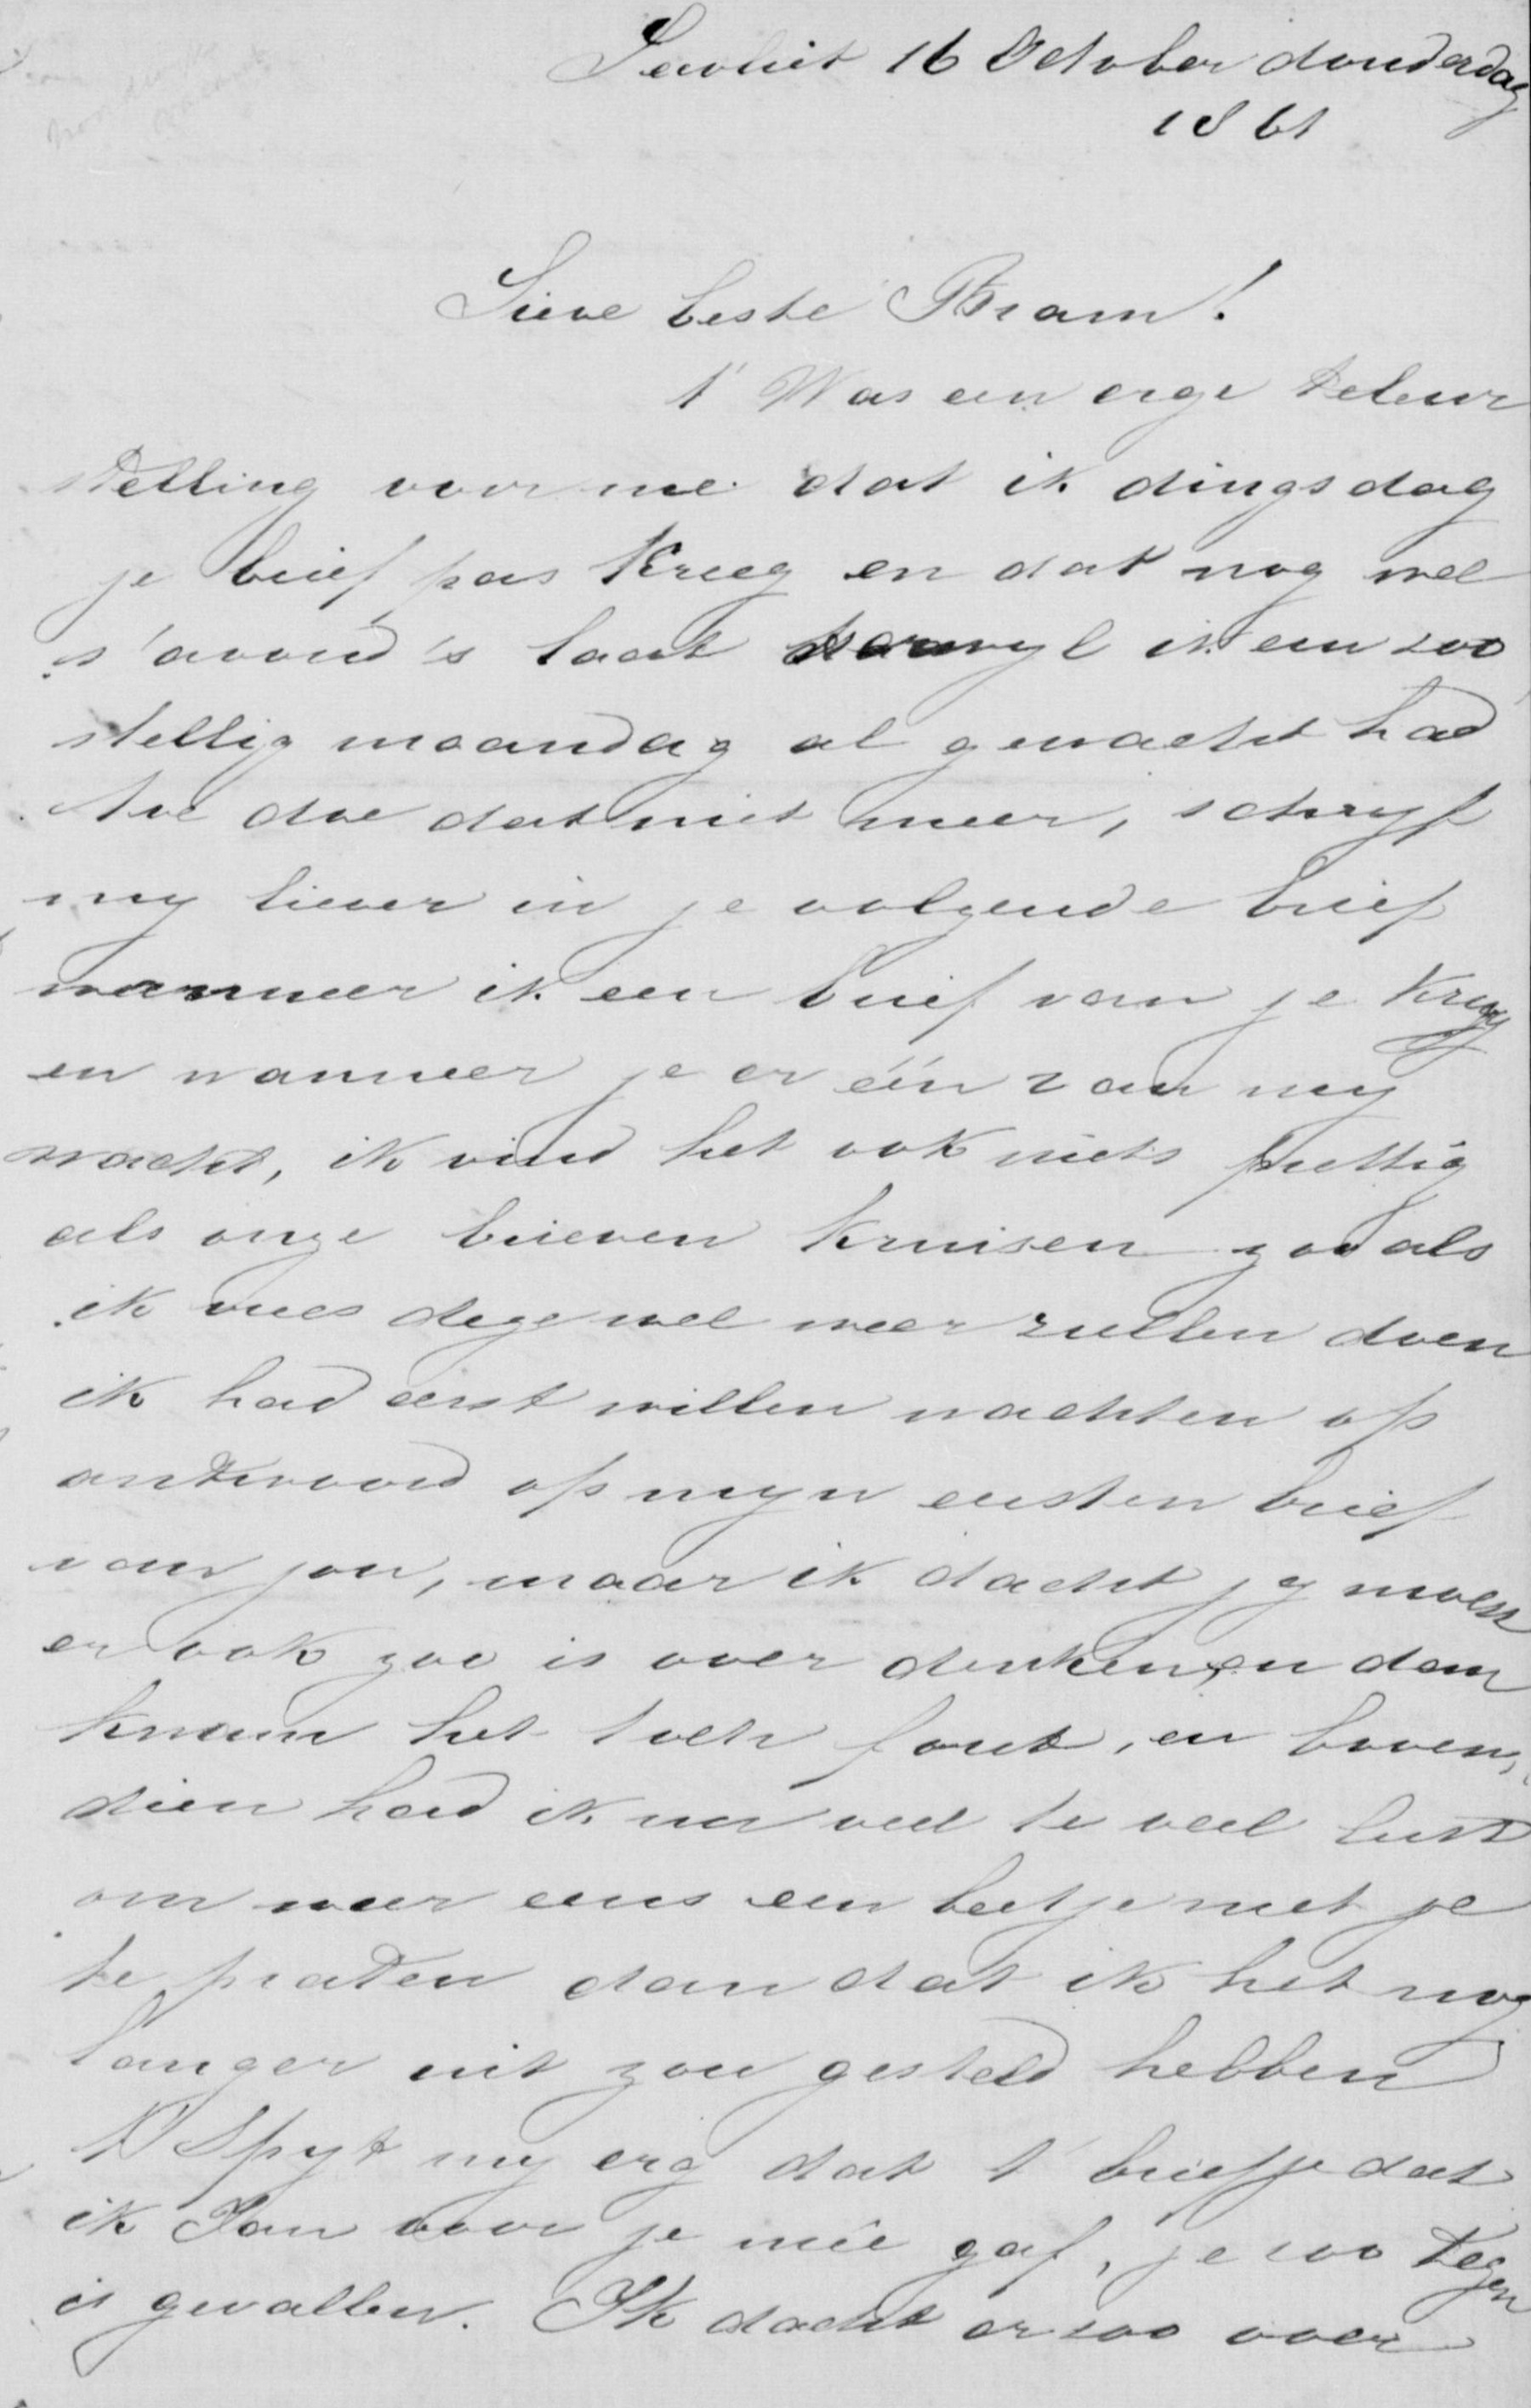 16 October donderdag
1861
Lieve beste Bram!
t' Was een erge teleur
stelling voor me dat ik dingsdag
je brief pas kreeg en dat nog wel
s'avond's laat terwyl ik em zoo
stellig maandag al gewacht had
toe doe dat niet meer, schryf
my liever in je volgende brief
wanneer ik een brief van je kryg
en wanneer je er één van my
wacht, ik vind het ook niets prettig
als onze brieven kruisen zoo als
ik vrees deze wel weer zullen doen
ik had eerst willen wachten op
antwoord op myn eersten brief
van jou, maar ik dacht jy moest
er ook zoo is over denken, en dan
kwam het toch fout, en boven,
dien had ik nu veel te veel lust
om weer eens een beetje met je
te praten dan dat ik het nog
langer uit zou gesteld hebben
t' Spyt my erg dat t' briefje dat
ik Jan voor je meê gaf, je zoo tegen
is gevallen. Ik dacht er zoo over